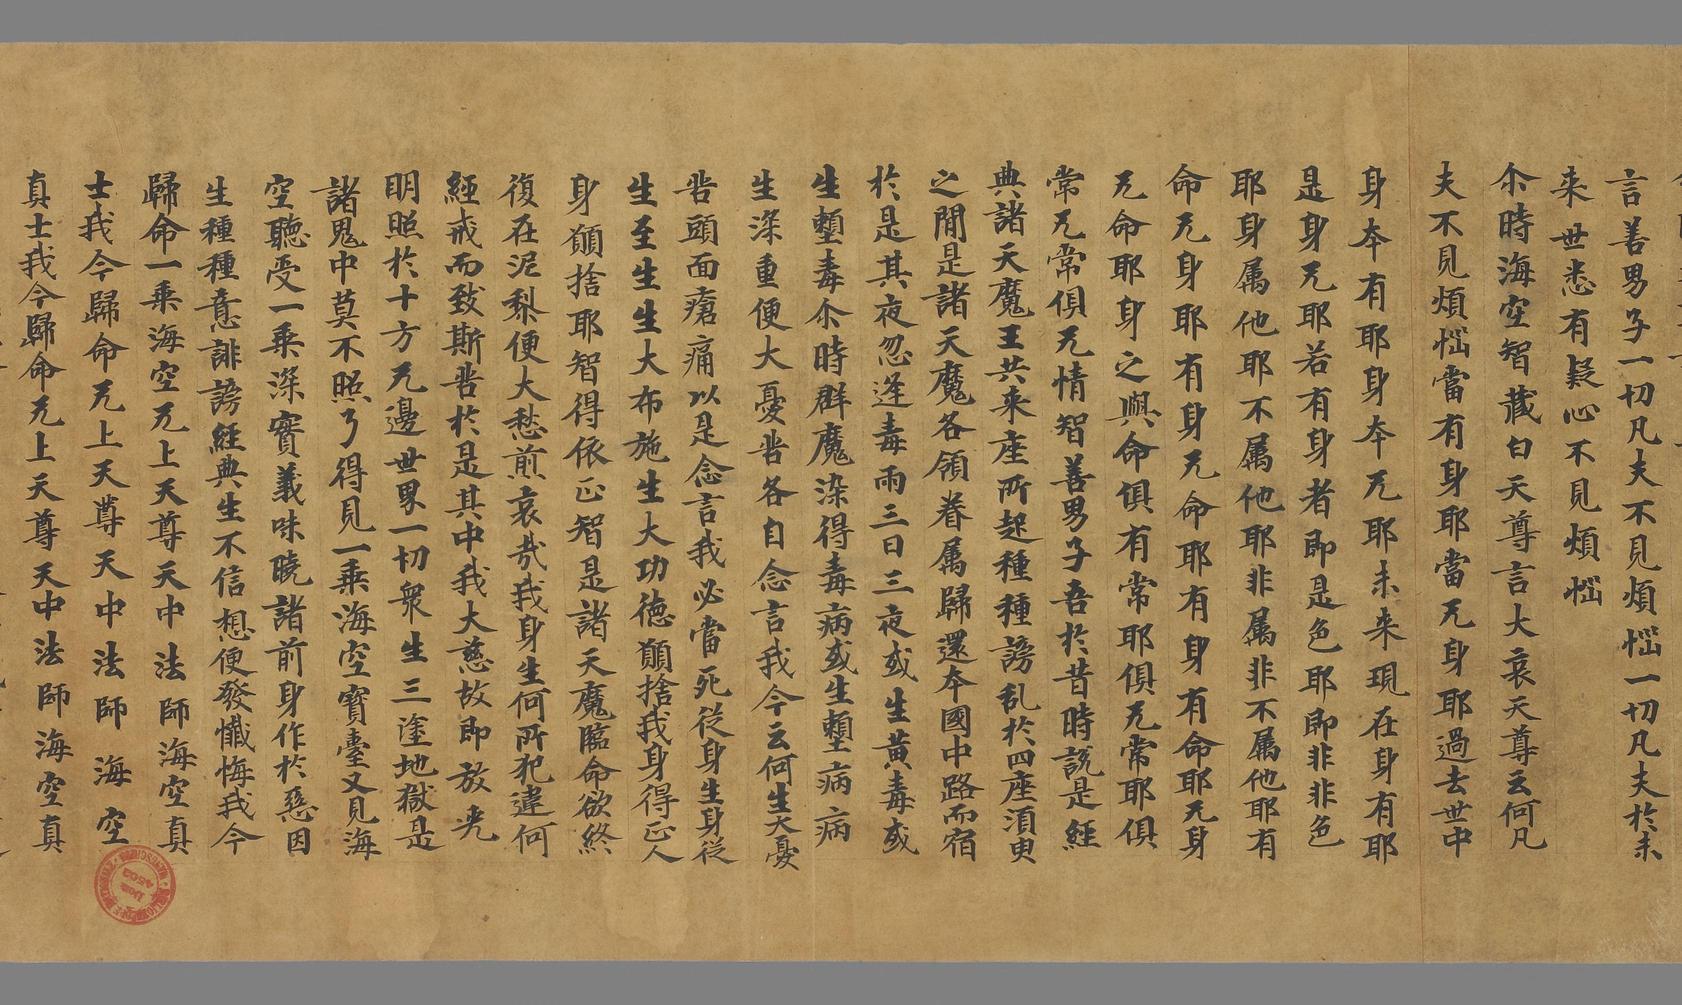 言善男子一切凡夫不見煩惱一切凡夫於未
来世悉有疑心不見煩惱
尒時海空智藏白天尊言大哀天尊云何凡
夫不見煩惱當有身耶當无身耶過去世中
身本有耶身本无耶未来現在身有耶
是身无耶若有身者即是色耶即非非色
耶身属他耶不属他耶非属非不属他耶有
命无身耶有身无命耶有身有命耶无身
无命耶身之與命俱有常耶俱无常耶俱
常无常俱无情智善男子吾於昔時説是經
典諸天魔王共来座所起種種謗乱於四座須臾
之間是諸天魔各領眷属歸還本國中路而宿
於是其夜忽逢毒雨三日三夜或生黄毒或
生蠥毒尒時群魔染得毒病或生蠥病病
生深重便大憂苦各自念言我今云何生大憂
苦頭面瘡痛以是念言我必當死従身生身従
生至生生生大布施生大功德願捨我身得正人
身願捨耶智得依正智是諸天魔臨命欲終
復在泥梨便大愁煎哀㢤我身生何所犯違何
經戒而致斯苦於是其中我大慈故即放光
明照於十方无邊世界一切衆生三塗地獄是
諸鬼中莫不照了得見一乘海空寳臺又見海
空聽受一乘深寳義味曉諸前身作於惡因
生種種意誹謗經典生不信想便發懺悔我今
歸命一乘海空无上天尊天中法師海空真
士我今歸命无上天尊天中法師海空
真士我今歸命无上天尊天中法師海空真